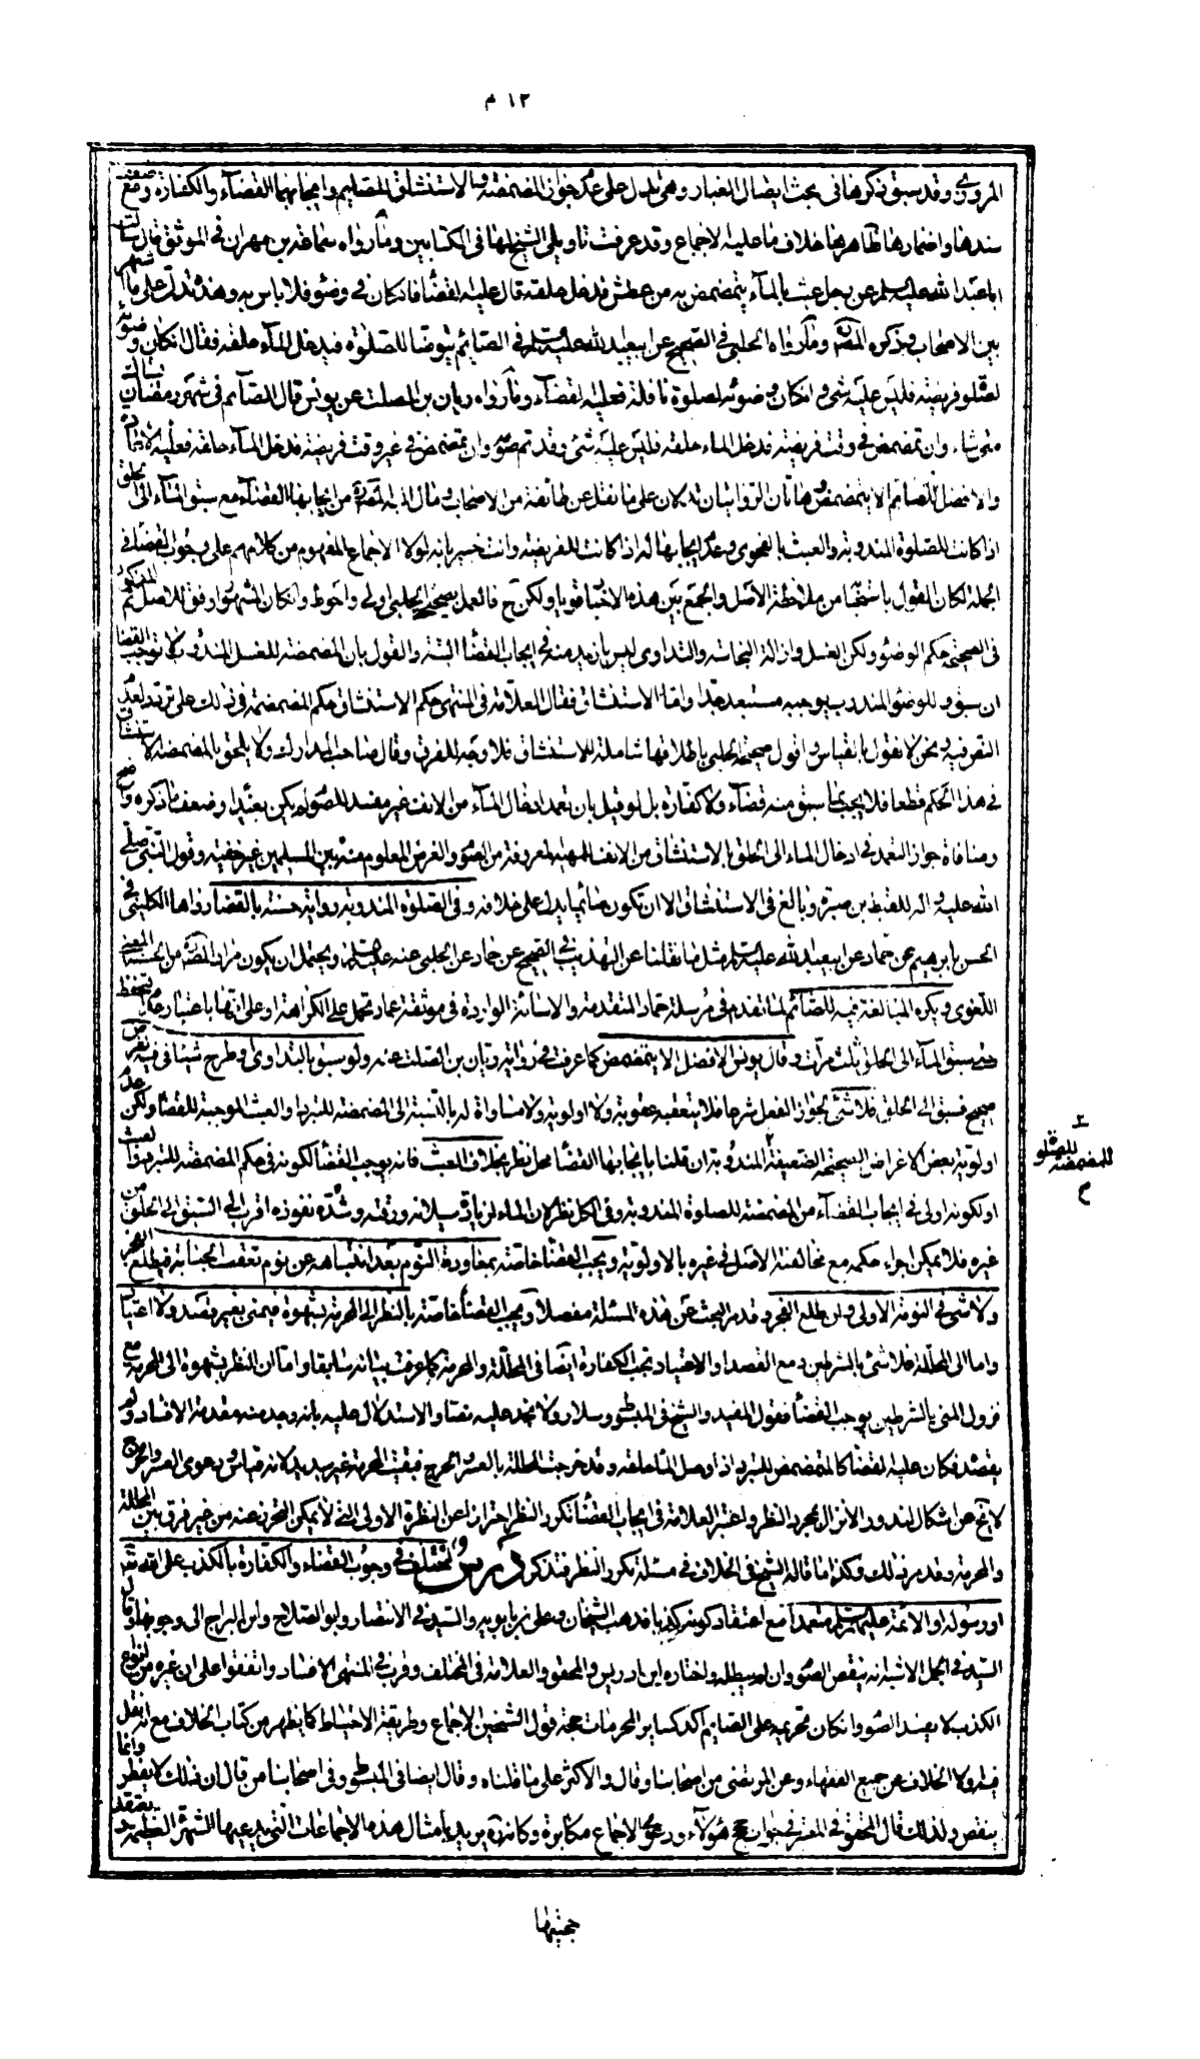 ٤١٢ م
المروزي وقد سبق ذكرها في بحث ايصال الغبار وهي تدل على عدم جواز المضمضة والاستنشاق للصايم وايجابهما القضاء والكفارة ومع ضعف
سندها واضمارها ظاهرها خلاف ما عليه الاجماع وقد عرفت تاويلي الشيخ لها في الكتابين وما رواه سماعة بن مهران في الموثق قال سالت
ابا عبد الله عليه السلم عن رجل عبث بالماء يتمضمض به من عطش فدخل حلقه قال عليه القضاء فان كان في وضوء فلا باس به وهذه تدل على ما اشتهر
بين الاصحاب وذكره المصنف وما رواه الحلبي في الصحيح عن ابيعبد الله عليه السلم في الصائم يتوضا للصلوة فيدخل الماء حلقه فقال ان كان وضوئه
لصلوة فريضة فليس عليه شيء وان كان وضوئه لصلوة نافلة فعليه القضاء وما رواه ريان بن الصلت عن يونس قال الصائم في شهر رمضان يستاك
متى شاء وان تمضمض في وقت فريضة فدخل الماء حلقه فليس عليه شيء وقد تم صومه وان تمضمض في غير وقت فريضة فدخل الماء حلقه فعليه الاعادة
والافضل للصائم الا يتمضمض وهاتان الروايتان تدلان على ما نقل عن طائفة من الاصحاب ومال اليه المصنف من ايجابها القضاء مع سبق الماء الى الحلق
اذا كانت للصلوة المندوبة والعبث بالفحوى وعدم ايجابها له اذا كانت للفريضة وانت خبير بانه لولا الاجماع المفهوم من كلامهم على وجوب القضاء في
الجملة لكان القول باستحبابها من ملاحظة الاصل والجمع بين هذه الاخبار قويا ولكن ح فالعمل بصحيحة الحلبي اولى واحوط وان كان المشهور اوفق للاصل ثم المذكور
في الصحيحة حكم الوضوء ولكن الغسل وازالة النجاسة والتداوي ليس بازيد منه في ايجاب القضاء البتة والقول بان المضمضة للغسل المندوب لا توجب القضاء
ان سبق وللوضوء المندوب يوجبه مستبعد جدا واما الاستنشاق فقال العلامة في المنتهى حكم الاستنشاق حكم المضمضة في ذلك على تردد لعدم
النص فيه ونحن لا نقول بالقياس واقول صحيحة الحلبي باطلاقها شاملة للاستنشاق فلا وجه للفرق وقال صاحب المدارك ولا يلحق بالمضمضة الاستنشاق
في هذا الحكم قطعا فلا يجب بما سبق منه قضاء ولا كفارة بل لو قيل بان تعمد ادخال الماء من الانف غير مفسد للصوم لم يكن بعيدا وضعف ما ذكره واضح
ومنافاة جواز التعمد في ادخال الماء الى الحلق بالاستنشاق من الانف للمهية المعروفة من الصوم والغرض المعلوم منه بين المسلمين غير خفية وقول النبي صلى
الله عليه واله للقيط بن صبرة وبالغ في الاستنشاق الا ان تكون صائما يدل على خلافه وفي الصلوة المندوبة رواية حسنة بالقضاء رواها الكليني في
الحسن بابرهيم عن حماد عن ابيعبد الله عليه السلم مثل ما نقلنا عن التهذيب في الصحيح عن حماد عن الحلبي عنه عليه السلم ويحتمل ان يكون مراد المصنف من الحسنة المعنى
اللغوي ويكره المبالغة فيه للصائم لما تقدم في مرسلة حماد المتقدمة والاسائة الواردة في موثقة عمار تحمل على الكراهة او على انها باعتبار عدم التحفظ
حتى سبق الماء الى الحلق ثلث مرات وقال يونس الافضل الا يتمضمض كما عرفت في رواية ريان بن الصلت عنه ولو سبق بالتداوي وطرح شيئا في فيه لغرض
صحيح فسبق الى الحلق فلا شيء لجواز الفعل شرعا فلا يتعقبه عقوبة ولا اولوية ولا مساواة له بالنسبة الى المضمضة للتبرد والعبث الموجبة للقضاء ولكن عدم
اولوية بعض الاغراض الصحيحة الضعيفة المندوبة ان قلنا بايجابها القضاء محل نظر بخلاف العبث فانه يوجب القضاء لكونه في حكم المضمضة للتبرد والعبث
او لكونه اولى في ايجاب القضاء من المضمضة للصلوة المندوبة وفي الكل نظر لان الماء لزيادة سيلانه ورقته وشدة نفوذه اقرب الى السبق الى الحلق من
غيره فلا يمكن اجراء حكمه مع مخالفته الاصل في غيره بالاولوية ويجب القضاء خاصة بمعاودة النوم بعد انتباهه عن نوم تعقب الجنابة فيطلع الفجر
ولا شيء في النومة الاولى وان طلع الفجر وقد مر البحث عن هذه المسئلة مفصلا ويجب القضاء خاصة بالنظر الى المحرمة بشهوة فيمني بغير قصد ولا اعتياد
واما الى المحللة فلا شيء بالشرطين ومع القصد او الاعتياد تجب الكفارة ايضا في المحللة والمحرمة كما عرفت بيانه سابقا واما ان النظر بشهوة الى المحرمة مع
نزول المني بالشرطين يوجب القضاء فقول المفيد والشيخ في المبسوط وسلار ولا نجد عليه نصا والاستدلال عليه بانه وجد منه مقدمة الافساد ولم
يقصده فكان عليه القضاء كالمتمضمض للتبرد اذا وصل الماء حلقه وقد خرجت المحللة بالعسر والحرج فبقيت المحرمة غير سديد لانه قياس ودعوى العسر والحرج
لا تخ عن اشكال لندور الانزال بمجرد النظر واعتبر العلامة في ايجاب القضاء تكرر النظر احترازا عن النظرة الاولى التي لا يمكن التحرز عنه من غير فرق بين المحللة
والمحرمة وقد مر ذلك وكذا ما قاله الشيخ في الخلاف في مسئلة تكرر النظر فتذكر درس اختلف في وجوب القضاء والكفارة بالكذب على الله تعالى
او رسوله او الائمة عليهم السلم متعمدا مع اعتقاد كونه كذبا فذهب الشيخان وعلي بن بابويه والسيد في الانتصار وابو الصلاح وابن البراج الى وجوبهما وقال
السيد في الجمل الاشبه انه ينقص الصوم وان لم يبطله واختاره ابن ادريس والمحقق والعلامة في المختلف وقرب في المنتهى الافساد واتفقوا على ان غيره من انواع
الكذب لا يفسد الصوم وان كان تحريمه على الصايم اكد كساير المحرمات حجة قول الشيخين الاجماع وطريقة الاحتياط كما يظهر من كتاب الخلاف مع انه نقل
فيه اولا الخلاف عن جميع الفقهاء وعن المرتضى من اصحابنا وقال والاكثر على ما قلناه وقال ايضا في المبسوط وفي اصحابنا من قال ان ذلك لا يفطر وانما
ينقص ولذلك قال المحقق في المعتبر في جواب حجج هؤلاء ودعوى الاجماع مكابرة وكانه ره يريد بامثال هذه الاجماعات التي يدعيها الشهرة العظيمة يعتقد
للمضمضة للصلو
ح
حجيتها